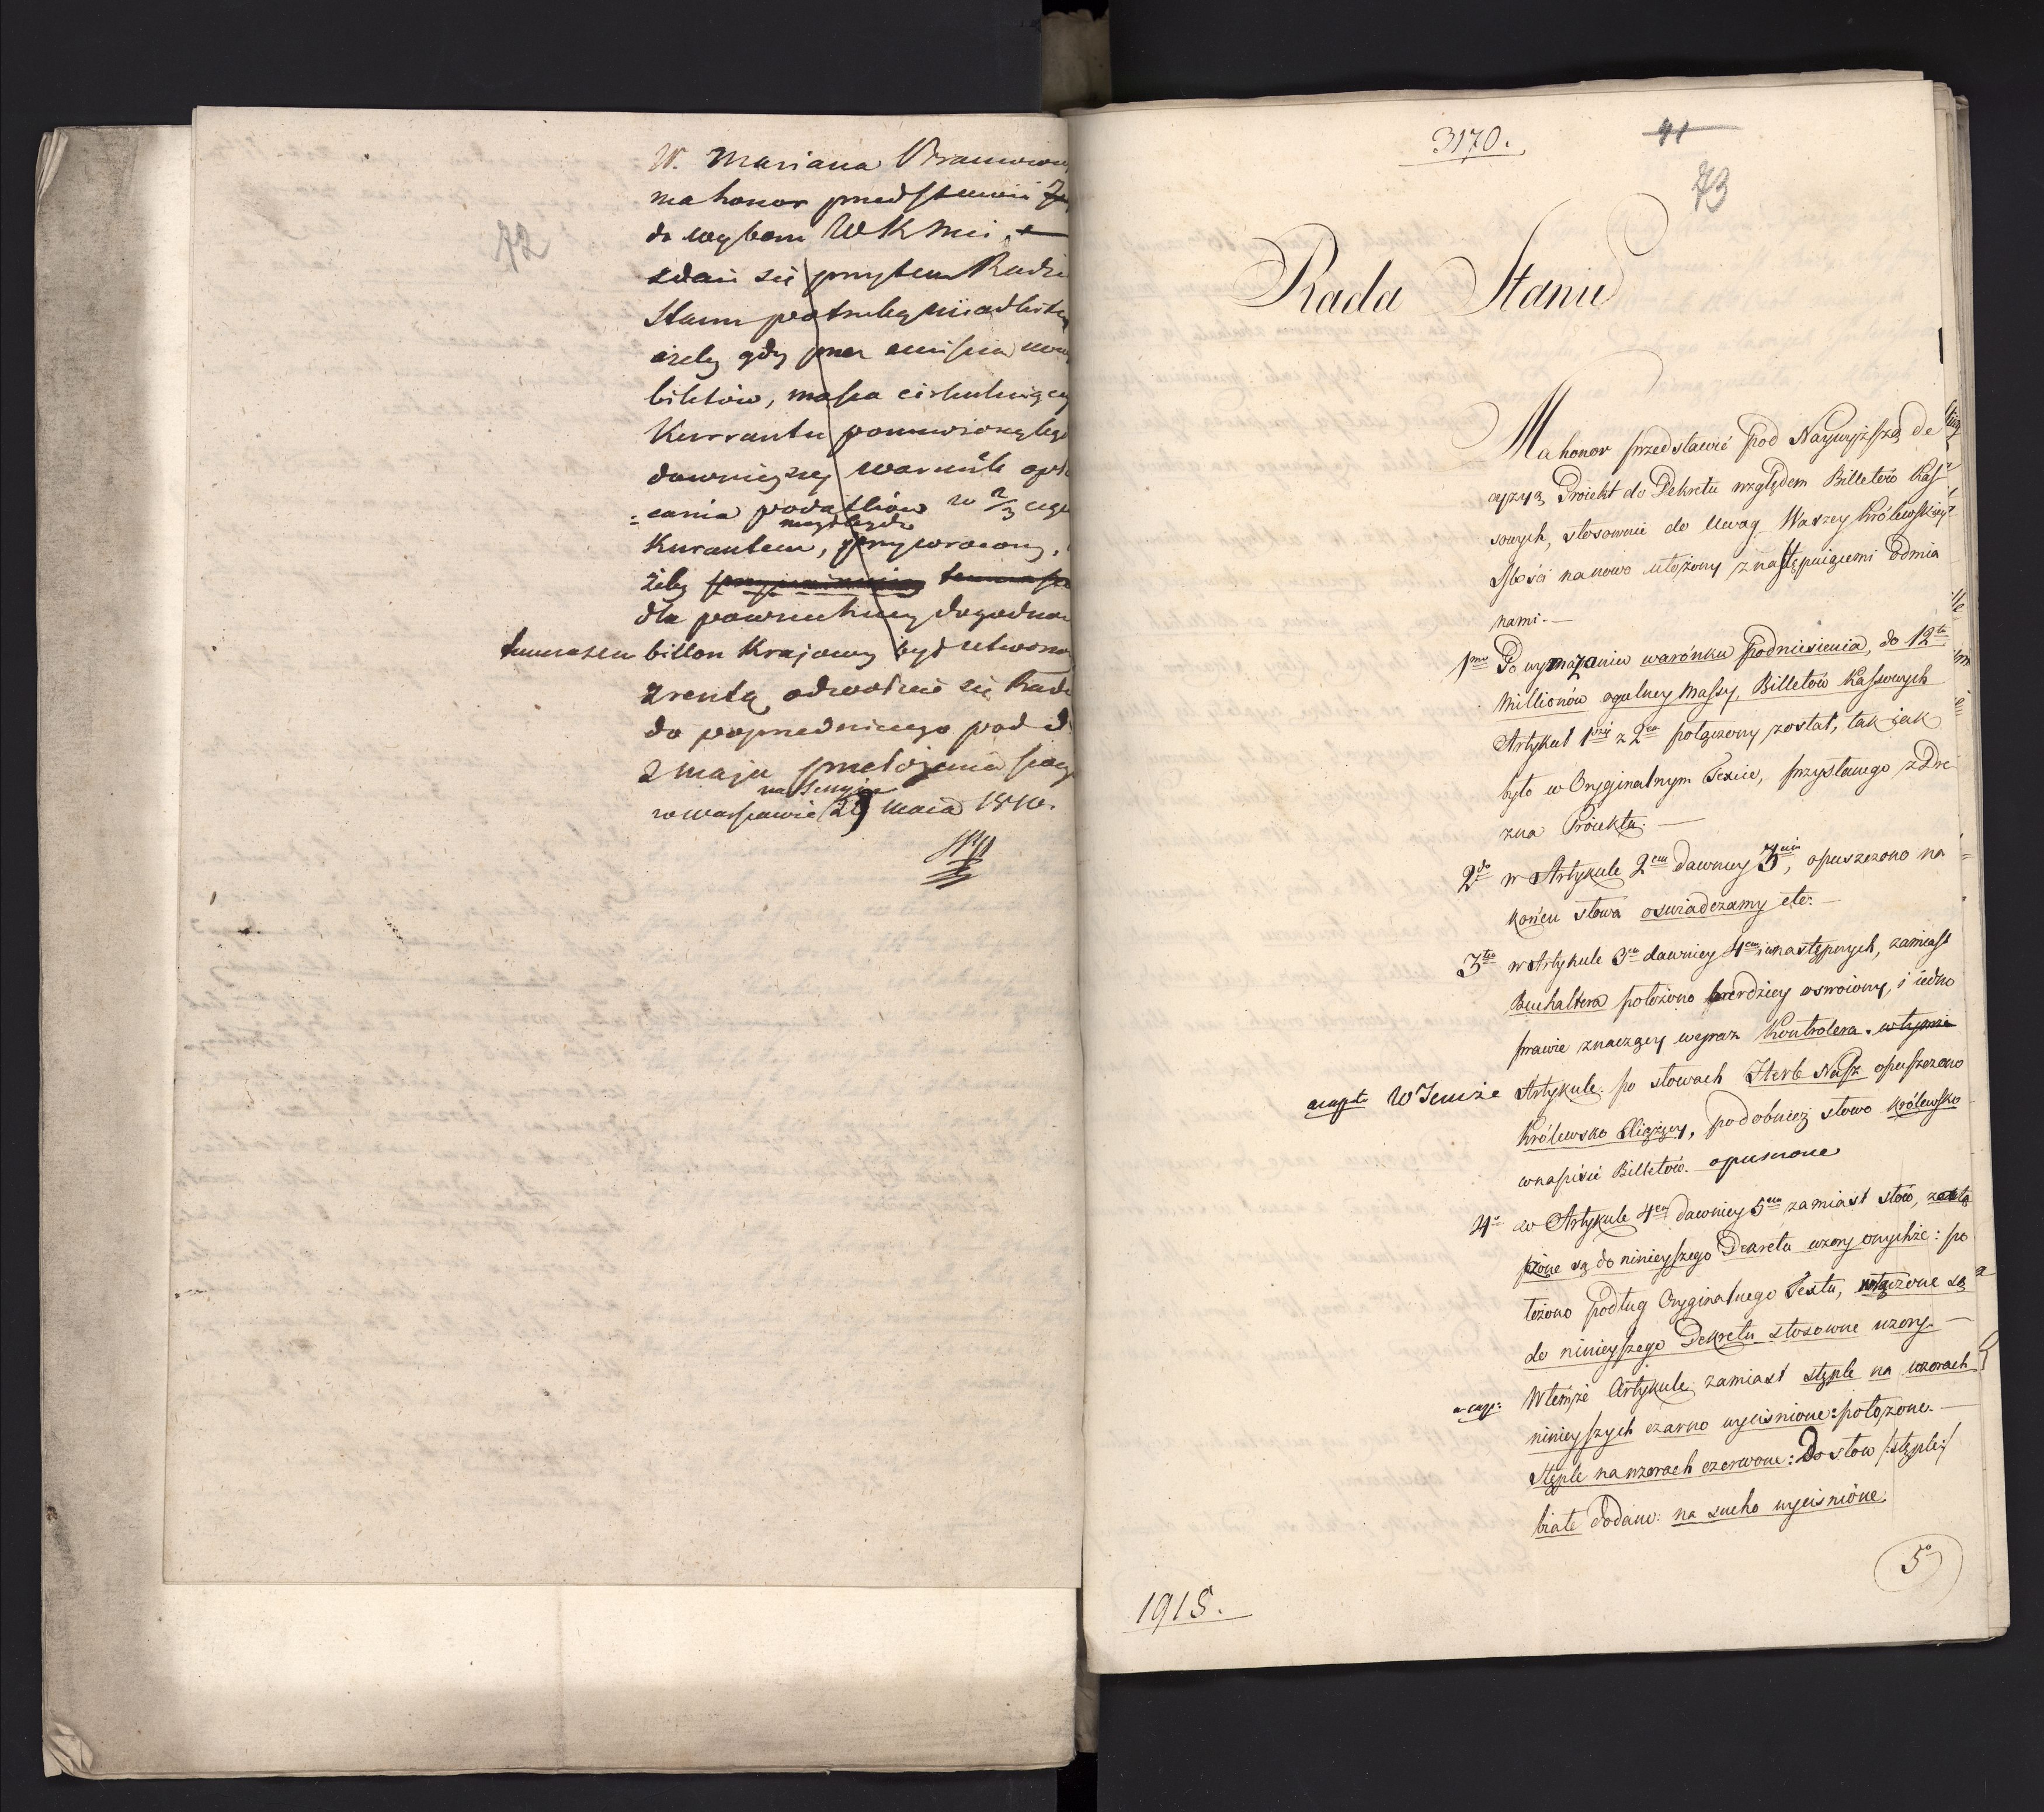 72
W. Mariana
ma honor przedstawić
do wyboru WKMci
zdaie się przytem Radzie
Stanu potrzebą
ażeby gdy przez emissią
biletów, massa cirkuluiącey
Kurrantu pomnożoną
dawnieyszy warunek
=cania podatków w 2/3
mógł bydź
Kurantem, przywrocony,
żeby
dla powszechney
tymczasem billon Kraiowy był
zresztą odwołuie się Rada
do poprzedniczego pod d.
2 maja przełożenia
na Sessyi
w warszawie 29 maia 1810.
3170.
41
73
Rada Stanu
Ma honor przedstawić pod Naywyższą de
cyzyą Proiekt do Dekretu względem Billetów Kas
sowych, stosownie do Uwag Waszey Królewskiey
Mości na nowo ułożony z następuiącemi Odmia
nami.—
1mo Po wymazaniu warónku Podniesienia, do 12tu
Millionów ogulney Massy, Billetów Kassowych
Artykuł 1szy z 2em połączony został, tak iak
było w Oryginalnym Texcie, przysłanego z Dre
zna Proiektu.—
2do w Artykule 2em dawniey 3cim, opuszczono na
końcu słowa oswiadczamy etc.—
3tio w Artykule 3m dawniey 4em i następnych, zamiast
Buchaltera położono bardziey oswoiony, i iedno
prawie znaczący wyraz Kontrolera. w tymże
W Temże Artykule po słowach Herb Nasz opuszczono
Królewsko Xliążęcy, podobnież słowo Królewsko
w napisie Billetów. opuszczone
4o w Artykule 4em dawniey 5em zamiast słów, załą
czone są do ninieyszego Dekretu wzory onychże: po
łożono podług Oryginalnego Textu, włączone są
do ninieyszego Dekretu stosowne wzory.—
W temże Artykule zamiast stęple na wzorach
ninieyszych czarno wyciśnione: położone.—
Stęple na wzorach czerwone: Do słow /:stęple:/
białe dodano: na sucho wyciśnione.
5o
1915.